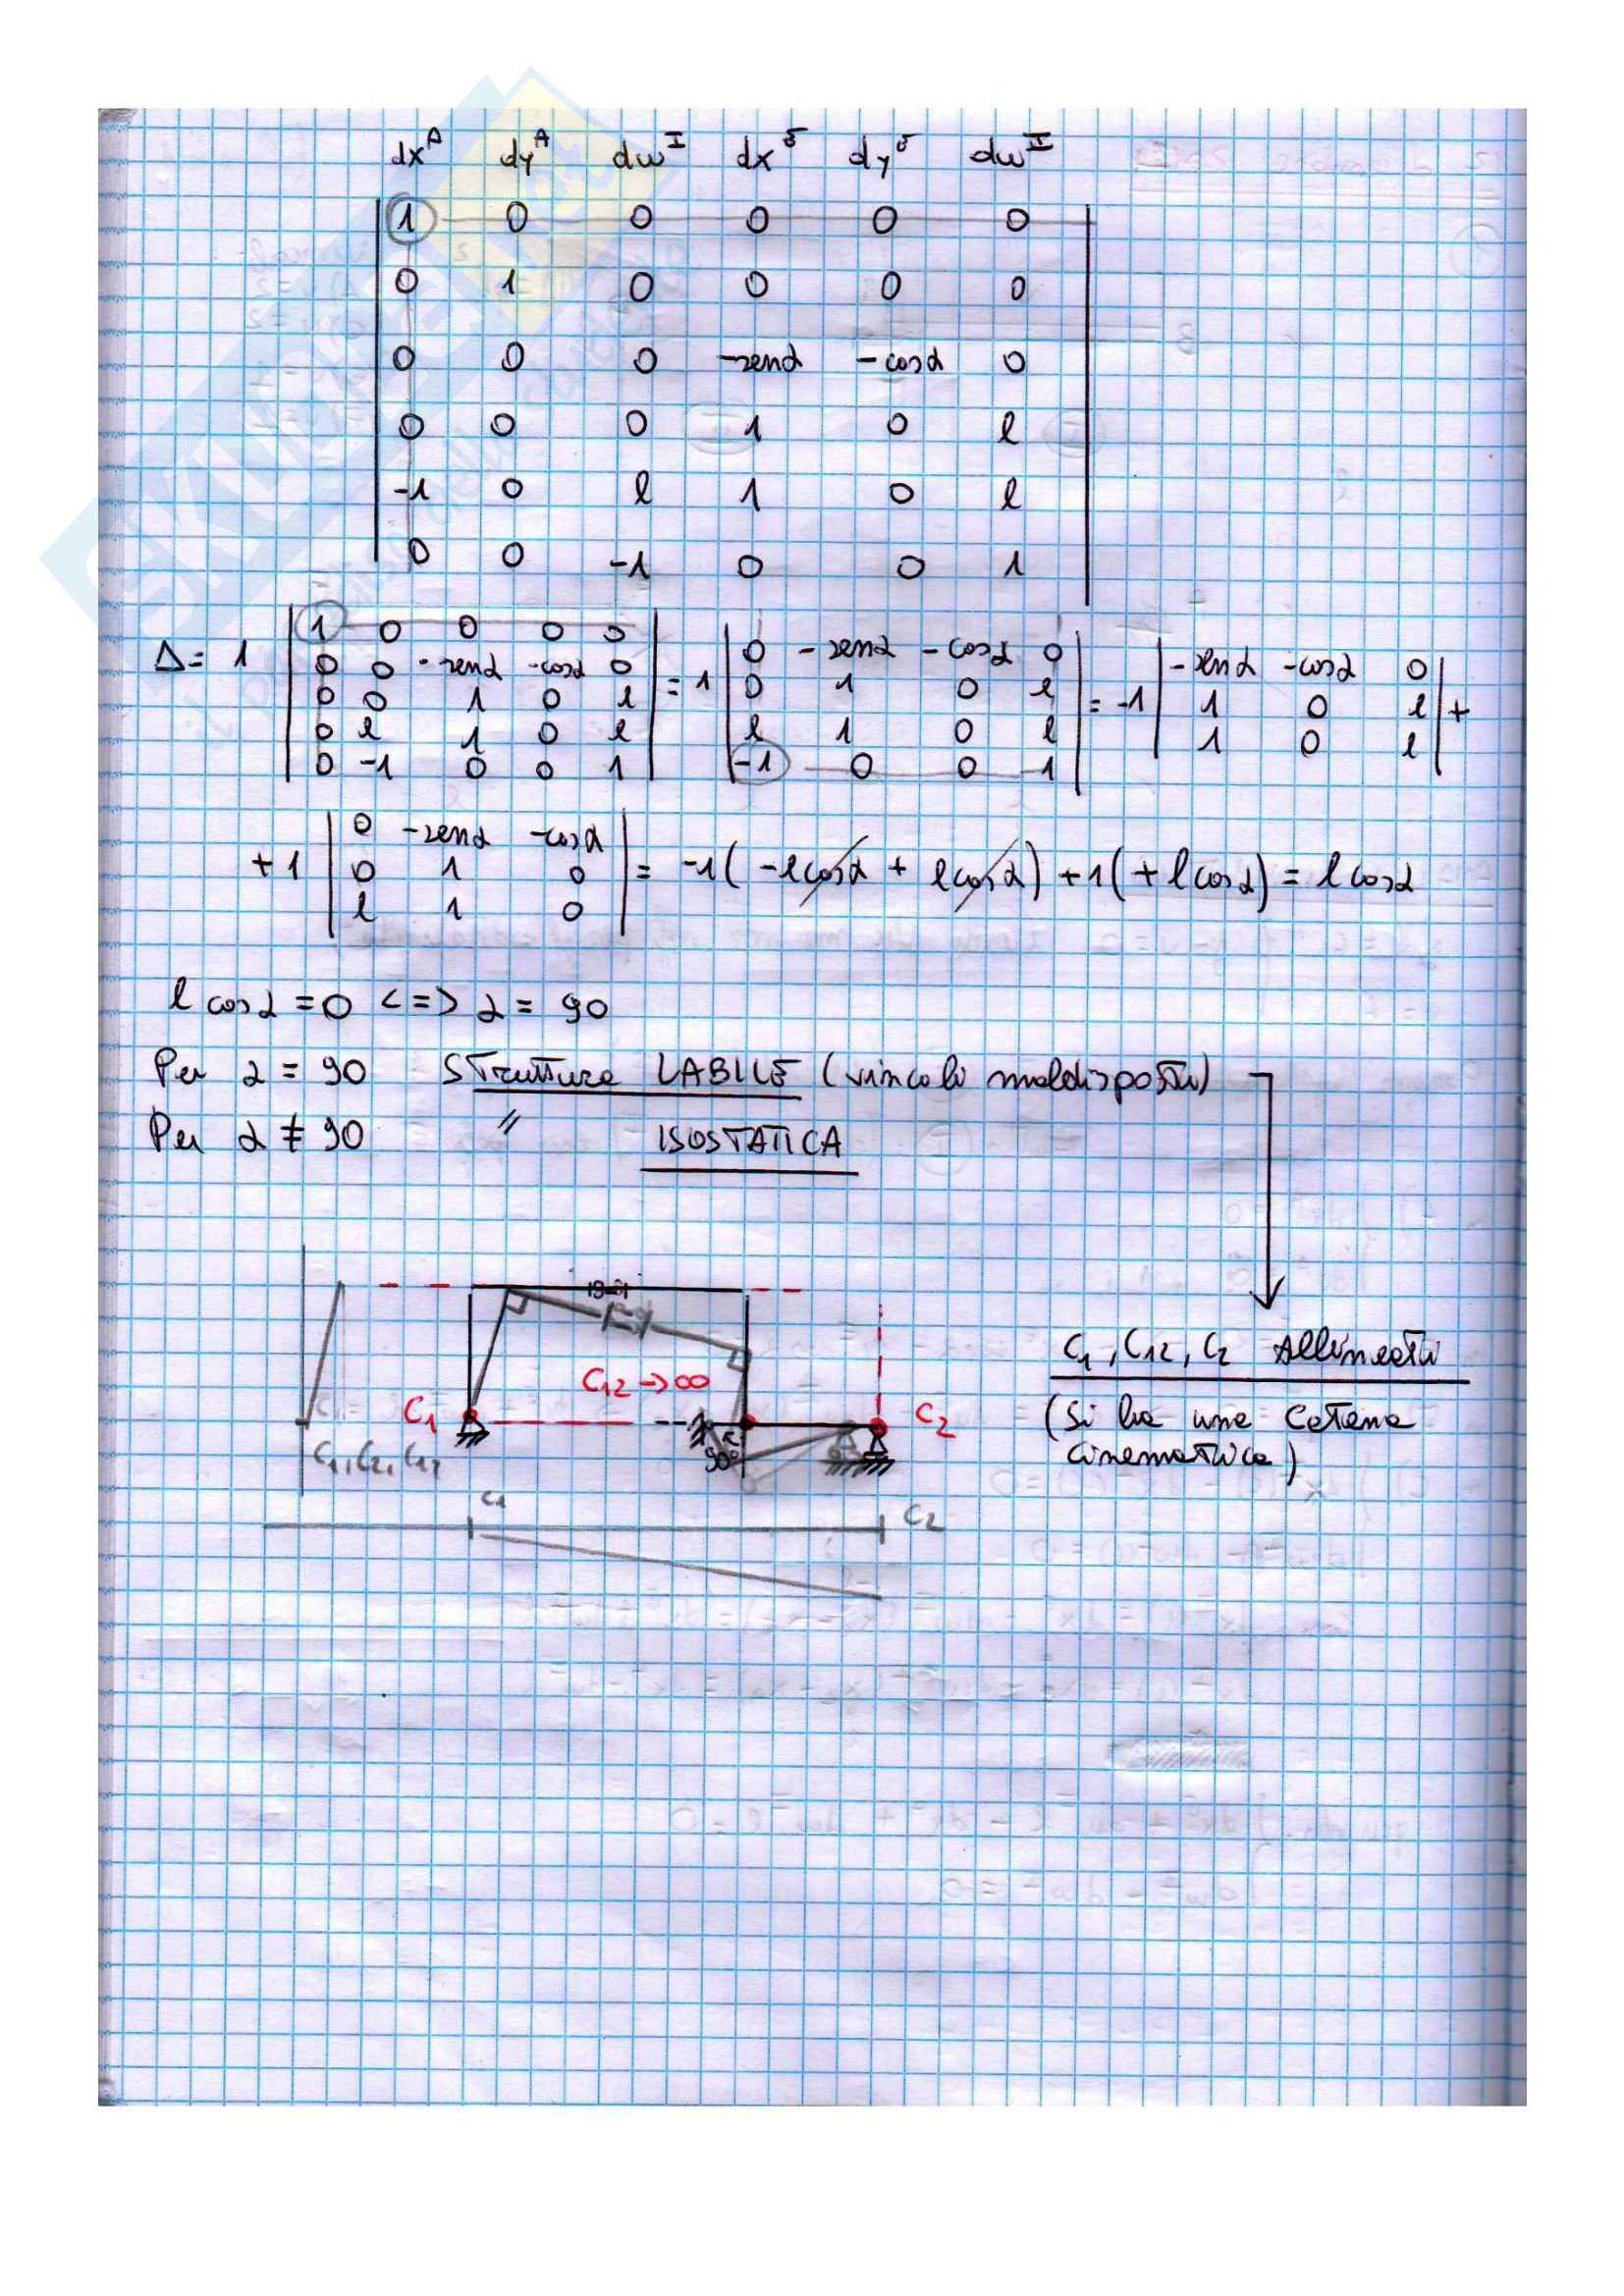 dx^A dy^A dω^I dx^E dy^E dω^II
1 0 0 0 0 0
0 1 0 0 0 0
0 0 0 -senα -cosα 0
0 0 0 1 0 l
-1 0 l 1 0 l
0 0 -1 0 0 1
Δ = 1 | 1 0 0 0 0 | = 1 | 0 -senα -cosα 0 | = -1 | -senα -cosα 0 | +
0 0 -senα -cosα 0 | 0 1 0 l | 1 0 l
0 0 1 0 l | l 1 0 l | 1 0 l
0 l 1 0 l | -1 0 0 1
0 -1 0 0 1
+1 | 0 -senα -cosα | = -1(-lcosα + lcosα) + 1(+lcosα) = lcosα
0 1 0
l 1 0
l cosα = 0 <=> α = 90
Per α = 90 Struttura LABILE (vincoli maldisposti)
Per α ≠ 90 " ISOSTATICA
C1, C12, C2 Allineati
(Si ha una Catena
cinematica)
C12 → ∞
C1
C2
90°
C1, C2, C12
C1
C2